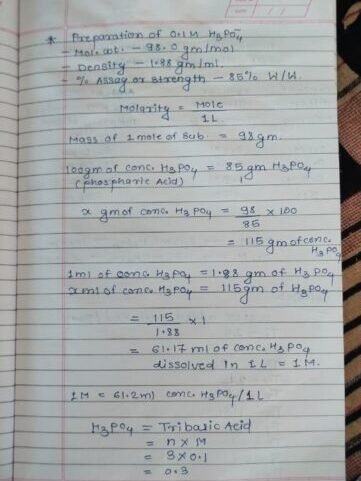 * Preparation of 0.1 M H3PO4
- Mol. wt. - 98.0 gm/mol
- Density - 1.88 gm/ml.
- % Assay or Strength - 85% W/W.
Molarity = Mole / 1 L
Mass of 1 mole of Sub. = 98 gm.
100 gm of conc. H3PO4 = 85 gm H3PO4
(phosphoric Acid)
x gm of conc. H3PO4 = 98/85 x 100
= 115 gm of conc. H3PO4
1 ml of conc. H3PO4 = 1.88 gm of H3PO4
x ml of conc. H3PO4 = 115 gm of H3PO4
= 115/1.88 x 1
= 61.17 ml of conc. H3PO4
dissolved in 1 L = 1 M.
1M = 61.2 ml conc. H3PO4/1 L
H3PO4 = Tribasic Acid
= n x M
= 3 x 0.1
= 0.3